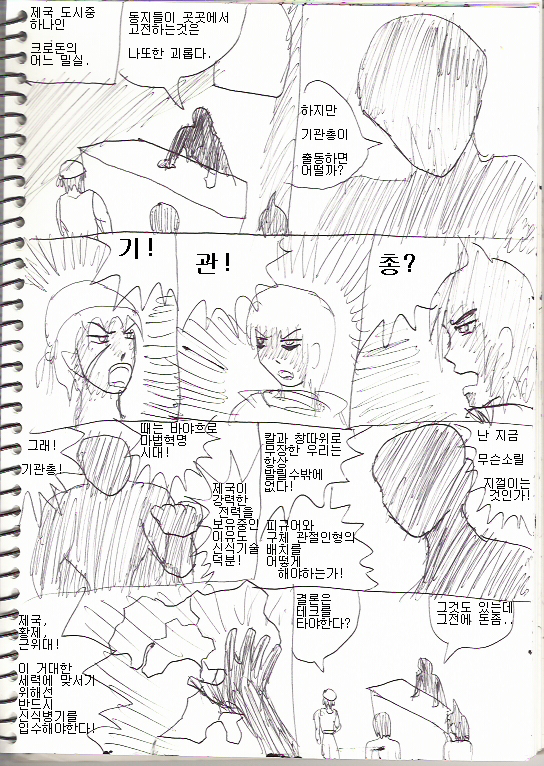 제국 도시중
하나인
크로돈의
어느 밀실.
동지들이 곳곳에서
고전하는것은
나또한 괴롭다.
하지만
기관총이
출동하면
어떨까?
기!
관!
총?
그래!
기관총!
때는 바야흐로
마법혁명
시대!
제국이
강력한
전력을
보유중인
이유도
신식기술
덕분!
칼과 창따위로
무장한 우리는
항상
발릴수밖에
없다!
피규어와
구체 관절인형의
배치를
어떻게
해야하는가!
난 지금
무슨소릴
지껄이는
것인가!
제국,
황제,
근위대!
이 거대한
세력에 맞서기
위해선
반드시
신식병기를
입수해야한다!
결론은
테크를
타야한다?
그것도 있는데
그전에 돈좀..